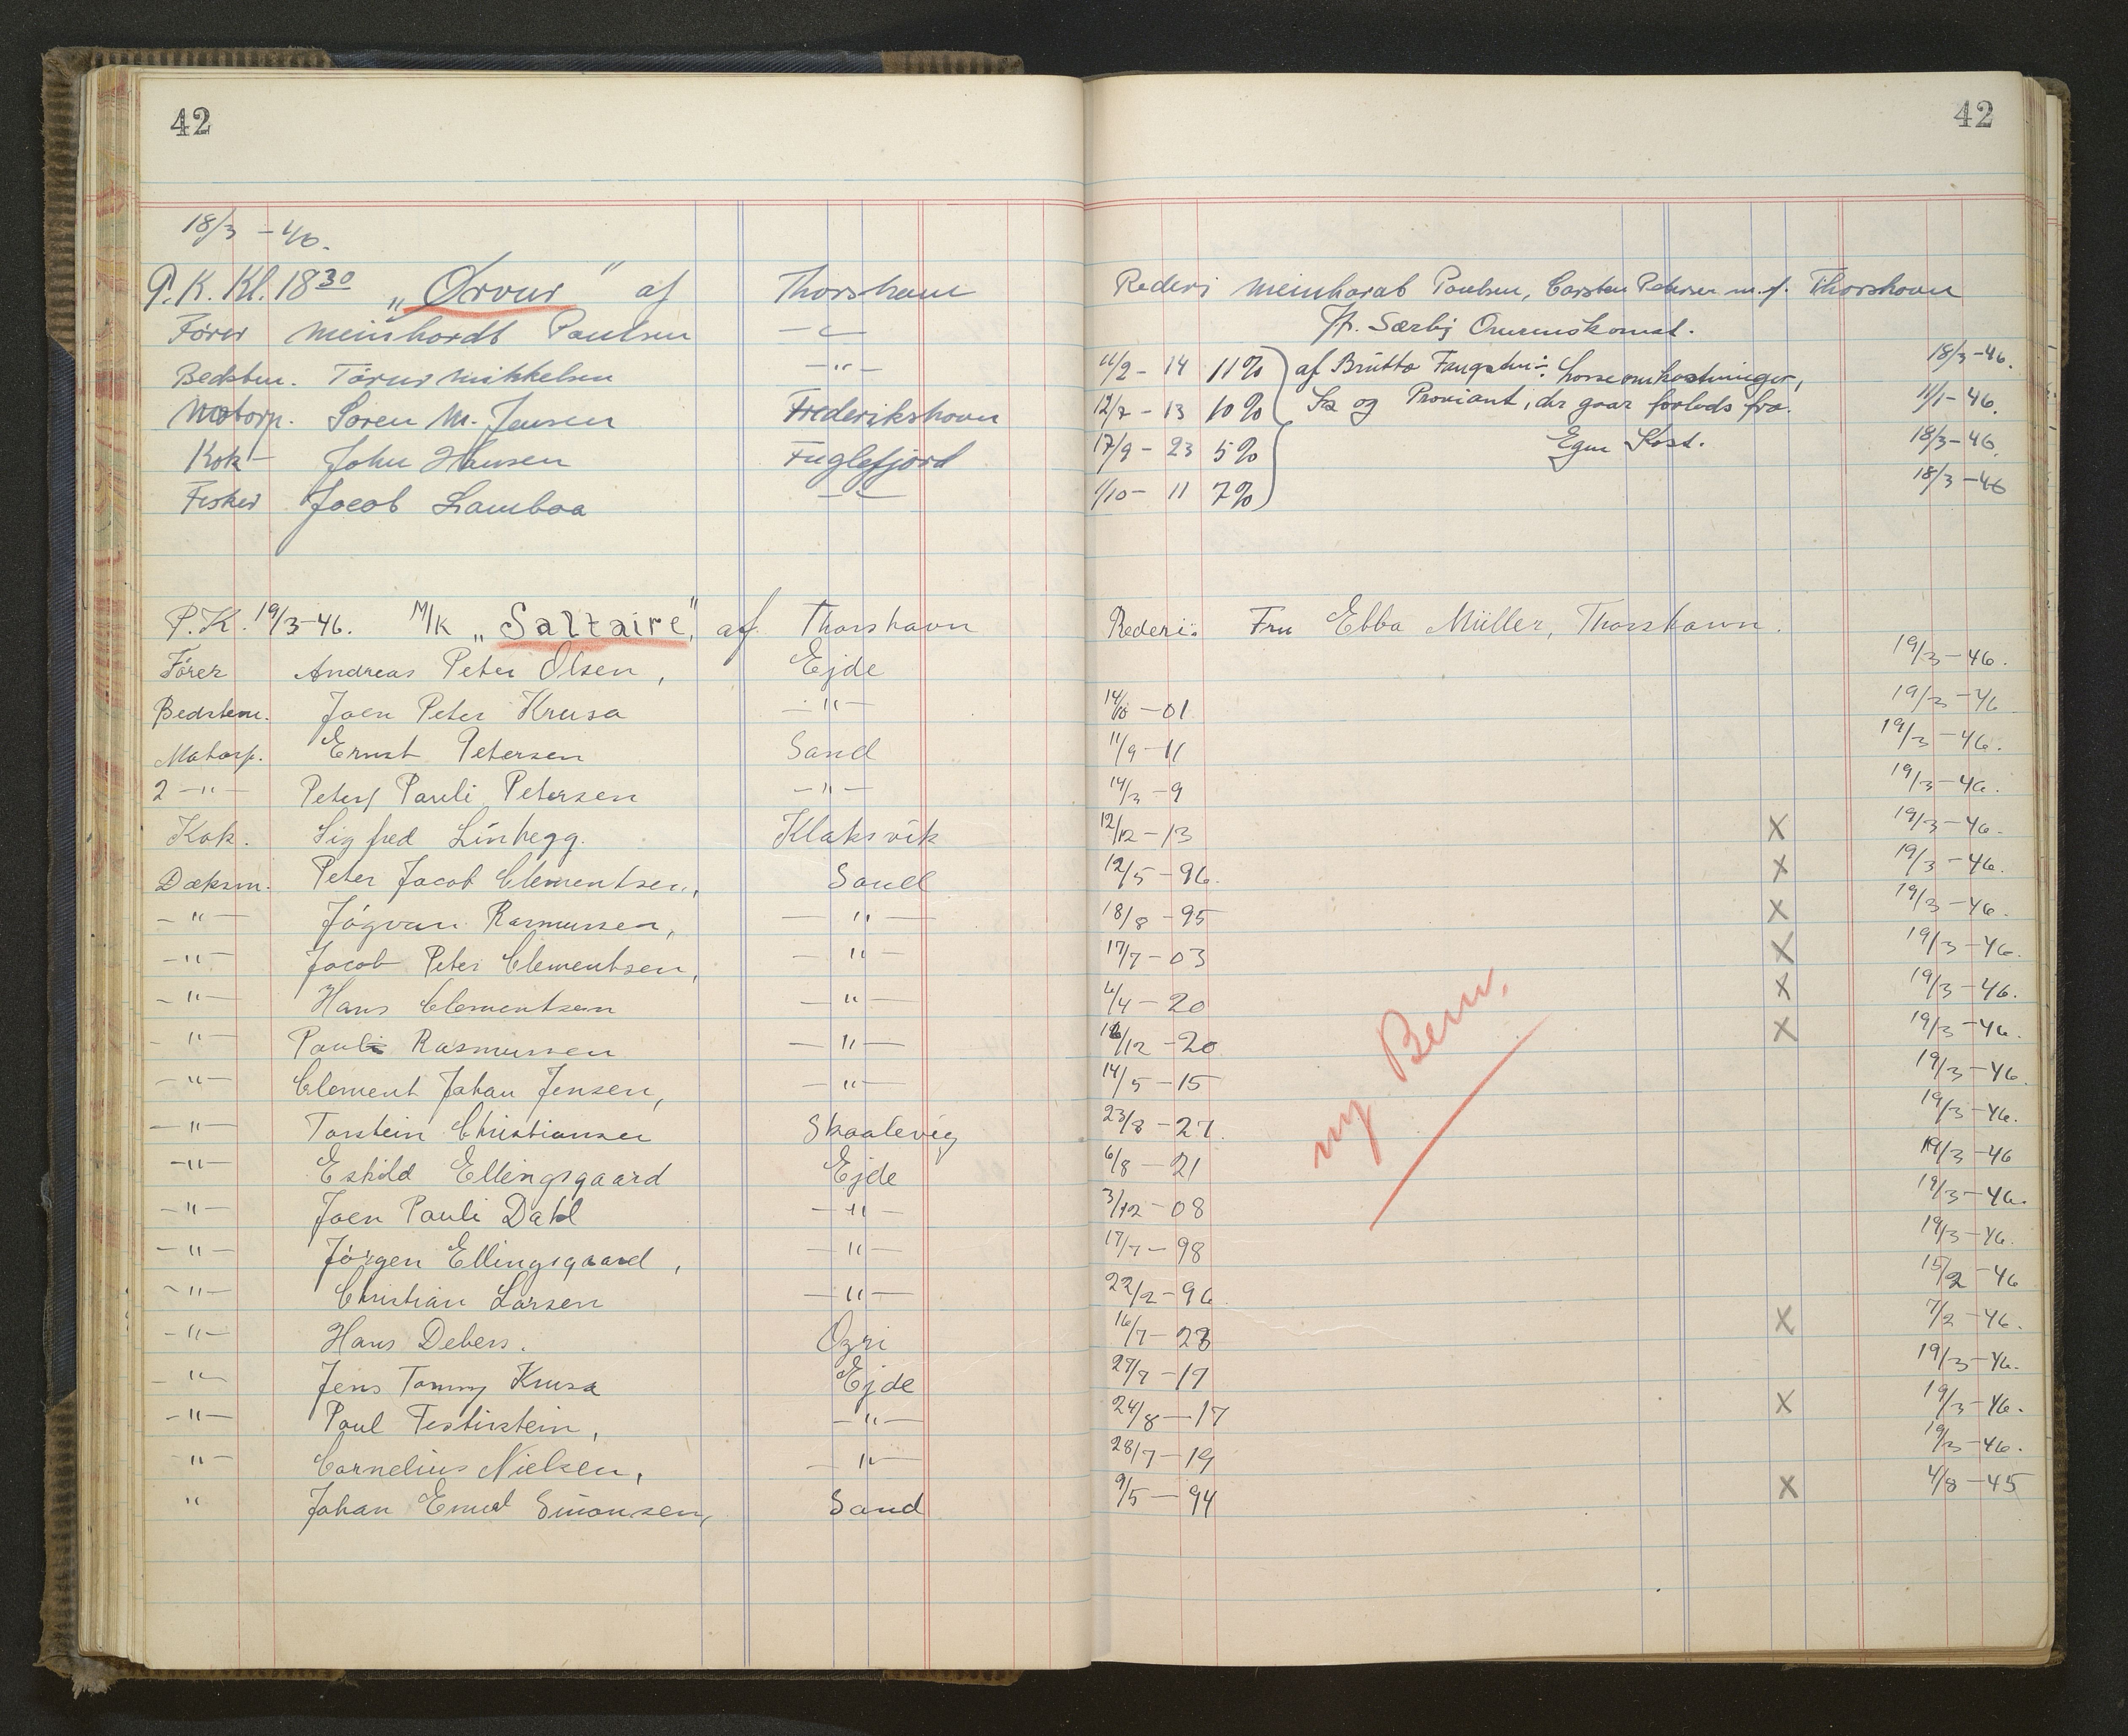 42
42
18/3 - 46.
P.K. Kl. 18 30 „Ørvur" af Thorshavn Rederi Meinhardt Poulsen, Carsten Petersen m.fl. Thorshavn
Fører Meinhardt Poulsen —"— Særlig
Bedstm. Tórur Mikkelsen —"— 11/2 - 14 11% af Brutto Fangsten ÷ Losseomkostninger, 18/3-46.
Motorp. Søren M. Jensen Frederikshavn 12/7 - 13 10% Is og Proviant, der gaar forlods fra. 11/1-46.
Kok John Hansen Fuglefjord 17/9 - 23 5% Egen Kost. 18/3-46.
Fisker Jacob Lamboa —"— 1/10 - 11 7% 18/3-46
P.K. 19/3-46. M/K „Saltaire" af Thorshavn Rederi: Fru Ebba Müller, Thorshavn.
Fører Andreas Peter Olsen, Ejde 19/3-46.
Bedstem. Joen Peter Krusa —"— 14/10 - 01 19/3-46
Motorp. Ernst Petersen Sand 11/9 - 11 19/3-46.
2 —"— Peter Pauli Petersen —"— 14/3 - 9 19/3-46.
Kok. Sigfred Linhegg. Klaksvik 12/12 - 13 X 19/3-46.
Dæksm. Peter Jacob Clementsen, Sand 12/5 - 96. X 19/3-46.
—"— Jógvan Rasmussen, —"— 18/8 - 95 X 19/3-46.
—"— Jacob Peter Clementsen, —"— 17/7 - 03 X 19/3-46.
—"— Hans Clementsen —"— 4/4 - 20 X 19/3-46.
—"— Pauli Rasmussen —"— /12 - 20 X 19/3-46.
—"— Clement Johan Jensen, —"— 14/5 - 15 19/3-46.
—"— Torstein Christiansen Skaalevig 23/8 - 27. 19/3-46.
—"— Eskild Ellingsgaard Ejde 6/8 - 21 19/3-46
—"— Joen Pauli Dahl —"— 3/12 - 08 19/3-46.
—"— Jørgen Ellingsgaard, —"— 17/7 - 98 19/3-46.
—"— Christian Larsen —"— 22/2 - 96. 15/2-46
—"— Hans Debers. Ozri 16/7 - 23 X 7/2-46.
—"— Jens Tommy Krusa Ejde 27/7 - 19 19/3-46.
—"— Poul Festirstein, —"— 24/8 - 17 X 19/3-46.
—"— Cornelius Nielsen, —"— 28/7 - 19 19/3-46.
" Johan Emil Simonsen, Sand 9/5 - 94 X 4/8-45
ny Bem.